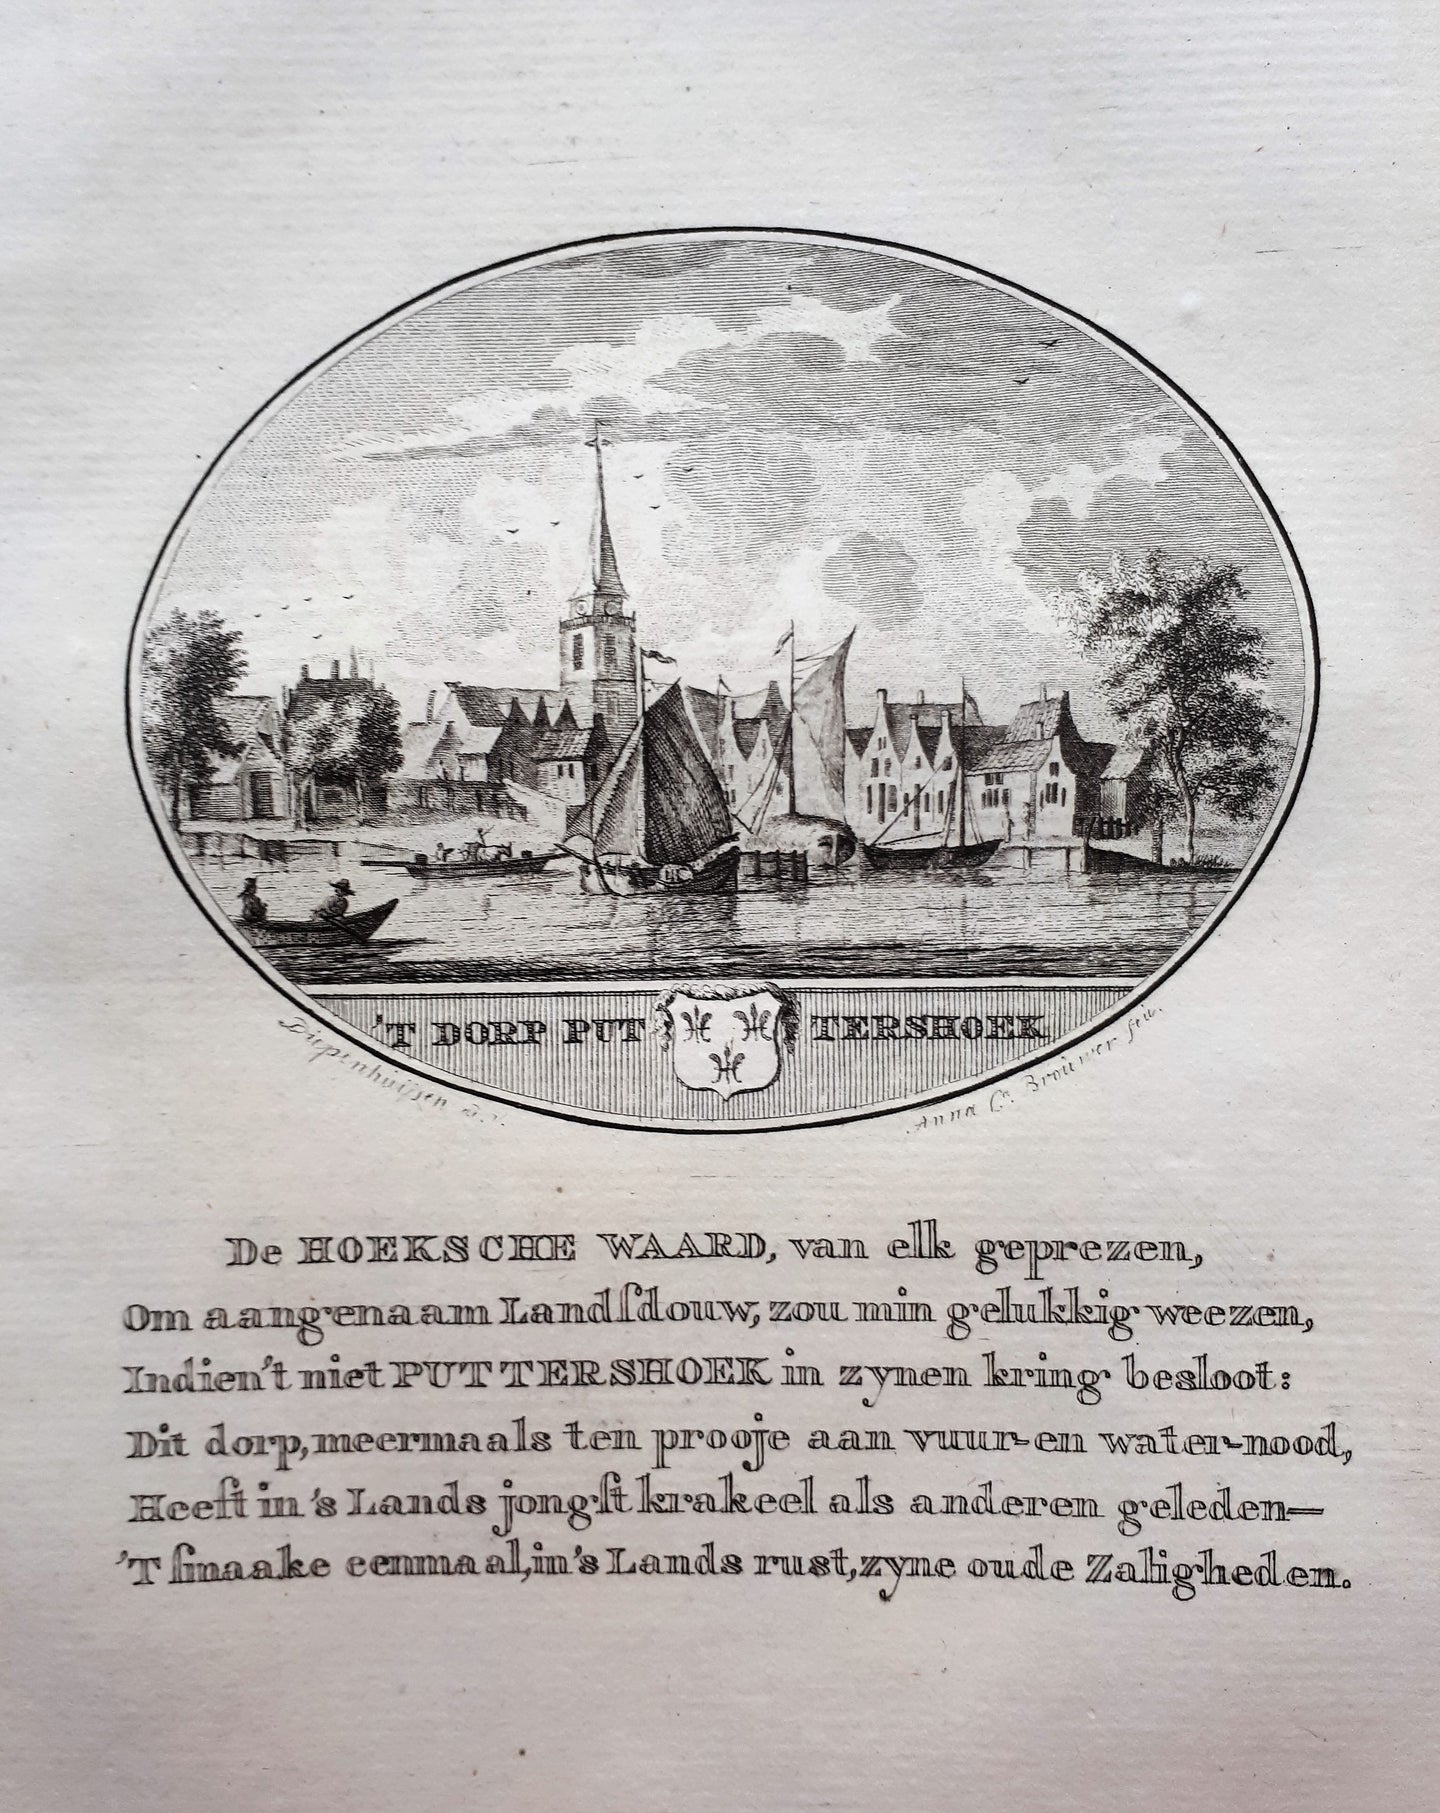 'T DORP PUTTERSHOEK
Anna Ca. Brouwer fec.
De HOEKSCHE WAARD, van elk geprezen,
Om aangenaam Landſdouw, zou min gelukkig weezen,
Indien't niet PUTTERSHOEK in zynen kring besloot:
Dit dorp, meermaals ten prooje aan vuur-en water-nood,
Heeft in 's Lands jongſt krakeel als anderen geleden—
'T ſmaake eenmaal, in 's Lands rust, zyne oude Zaligheden.